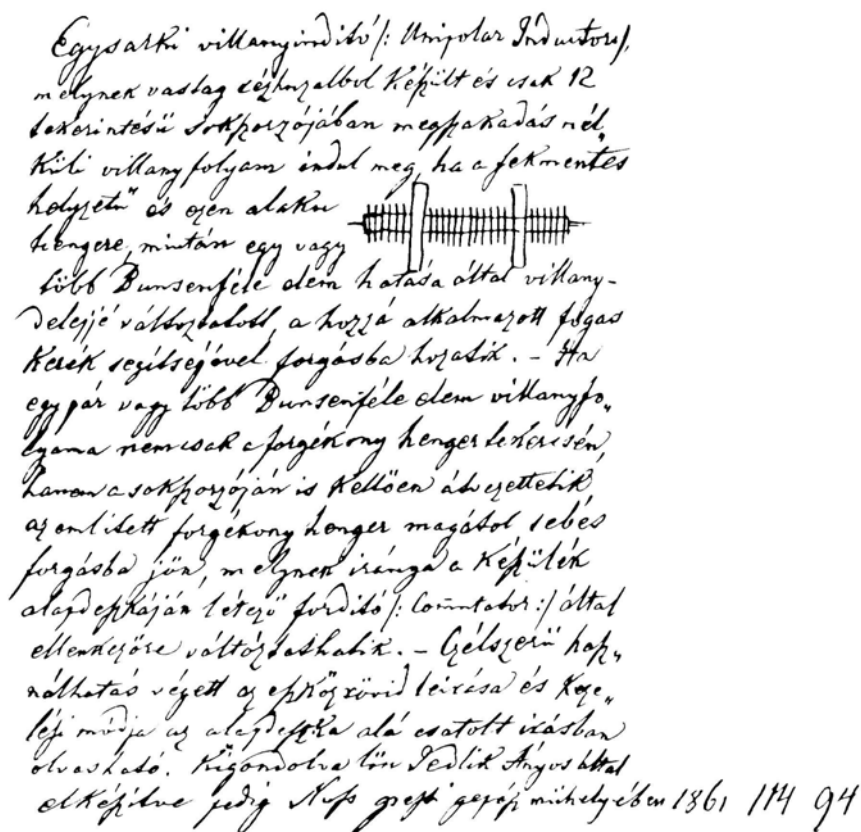 Egysarki villanyindító /: Unipolar Inductor :/,
melynek vastag rézhuzalbol készült és csak 12
tekerintésü sokszorzójában megszakadás nél„
küli villanyfolyam indul meg, ha a fekmentes
helyzetű és ezen alaku
hengere, miután egy vagy
több Bunsenféle elem hatása által villany-
delejjé változtatott, a hozzá alkalmazott fogas
kerék segítségével forgásba hozatik. – Ha
egy pár vagy több Bunsenféle elem villanyfo„
lyama nemcsak a forgékony henger tekercsén,
hanem a sokszorzóján is kellően átvezettetik,
az emlitett forgékony henger magától sebes
forgásba jön, melynek iránya a készülék
alapdeszkáján létező fordító /: Comutator :/ által
ellenkezőre változtathatik. – Czélszerü hasz„
nálhatás végett az eszköz rövid leirása és keze„
lési módja az alapdeszka alá csatolt irásban
olvasható. Kigondolva lön Jedlik Ányos által
elkészitve pedig Nuss pesti gépész mühelyében 1861 114 94